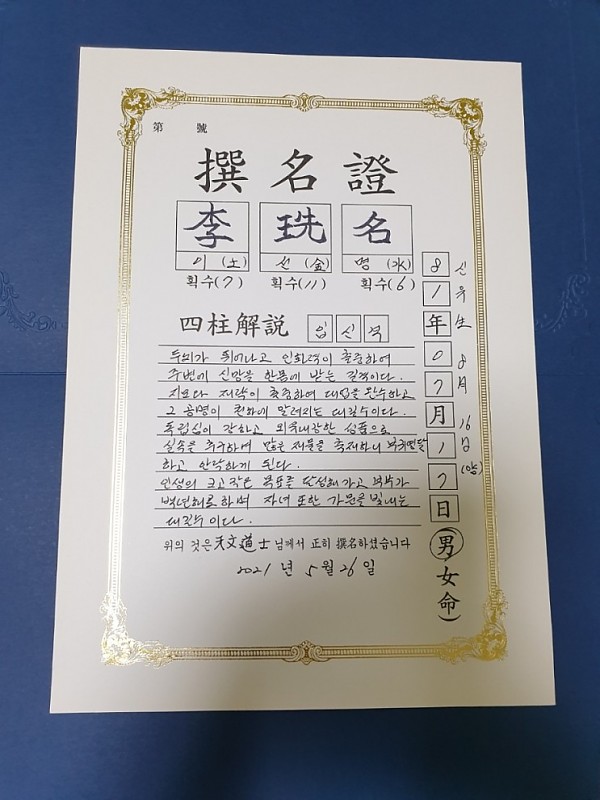 第 號
撰名證
李 珗 名
이 (土) 선 (金) 명 (水)
획수(7) 획수(11) 획수(6)
四柱解說 임 신 격
두뇌가 뛰어나고 인화력이 출중하여
주변에 신망을 한몸에 받는 길격이다.
지모와 재략이 출중하여 대업을 완수하고
그 공명이 천하에 알려지는 대길수이다.
독립심이 강하고 외유내강한 성품으로
실속을 추구하며 많은 재물을 축재하니 부귀영달
하고 안락하게 된다.
인생의 크고 작은 목표를 달성해가고 부부가
백년해로하며 자녀 또한 가문을 빛내는
대길수이다.
위의 것은 天文道士 님께서 正히 撰名하셨습니다
2021년 5월 26일
81年07月17日(男女命)
신유生 8月 16日 (양)